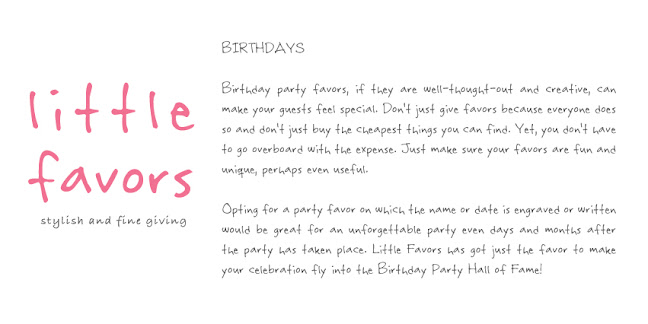 BIRTHDAYS
little
favors
stylish and fine giving
Birthday party favors, if they are well-thought-out and creative, can
make your guests feel special. Don't just give favors because everyone does
so and don't just buy the cheapest things you can find. Yet, you don't have
to go overboard with the expense. Just make sure your favors are fun and
unique, perhaps even useful.
Opting for a party favor on which the name or date is engraved or written
would be great for an unforgettable party even days and months after
the party has taken place. Little Favors has got just the favor to make
your celebration fly into the Birthday Party Hall of Fame!